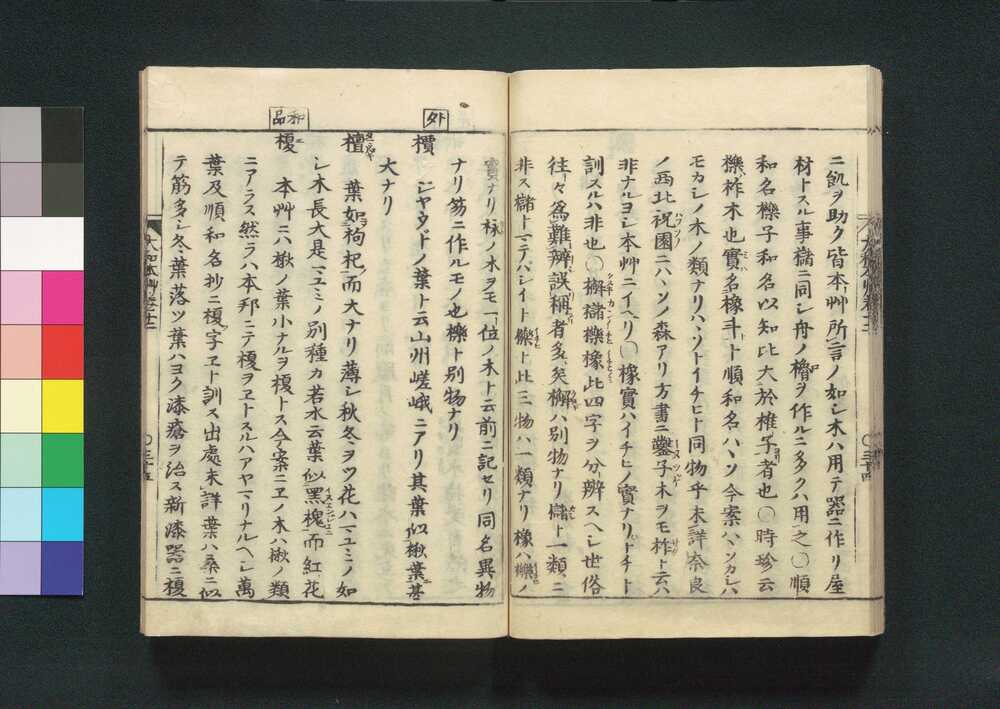 ニ飢ヲ助ク皆本艸所言ノ如シ木ハ用テ器ニ作リ屋
材トスル事櫧ニ同シ舟ノ櫓ヲ作ルニ多クハ用之〇順
和名櫟子和名以知比大於椎子者也〇時珍云
櫟柞木也實名橡斗ト順和名ハヽソ今案ハヽソカシハ
モカシノ木ノ類ナリハヽソトイチヒト同物乎未詳奈良
ノ西北祝園ニハヽソノ森アリ方書ニ鑿子木ヲモ柞ト云ハ
非ナルヨシ本艸ニイヘリ〇橡實ハイチヒノ實ナリトチト
訓スルハ非也〇槲櫧櫟橡此四字ヲ分辨スヘシ世俗
往々為難辨誤稱者多矣槲ハ別物ナリ櫧ト一類ニ
非ス櫧ト マテバシイト櫟ト比三物ハ一類ナリ橡ハ櫟ノ
實ナリ 柞ノ木ヲモ一位ノ木ト云前ニ記セリ同名異物
ナリ笏ニ作ルモノ也櫟ト別物ナリ
外
檟 シヤタドノ葉ト云山州嵯峨ニアリ其葉似楸葉甚
大ナリ
檀 葉如枸杞而大ナリ薄シ秋冬ヲツ花ハマユミノ如
シ木長大是マユミノ別種カ若水云葉似黑槐而紅花
和品
榎 本艸ニハ楸ノ葉小ナルヲ榎トス今案ニヱノ木ハ楸ノ類
ニアラス然ラハ本邦ニテ榎ヲヱトスルハアヤマリナルヘシ萬
葉及順和名抄ニ榎字ヱト訓ス出處未詳葉ハ桑ニ似
テ筋多シ冬葉落ツ葉ハヨク漆瘡ヲ治ス新漆器ニ榎
大和本艸卷之十二
〇三十五
〇三十四